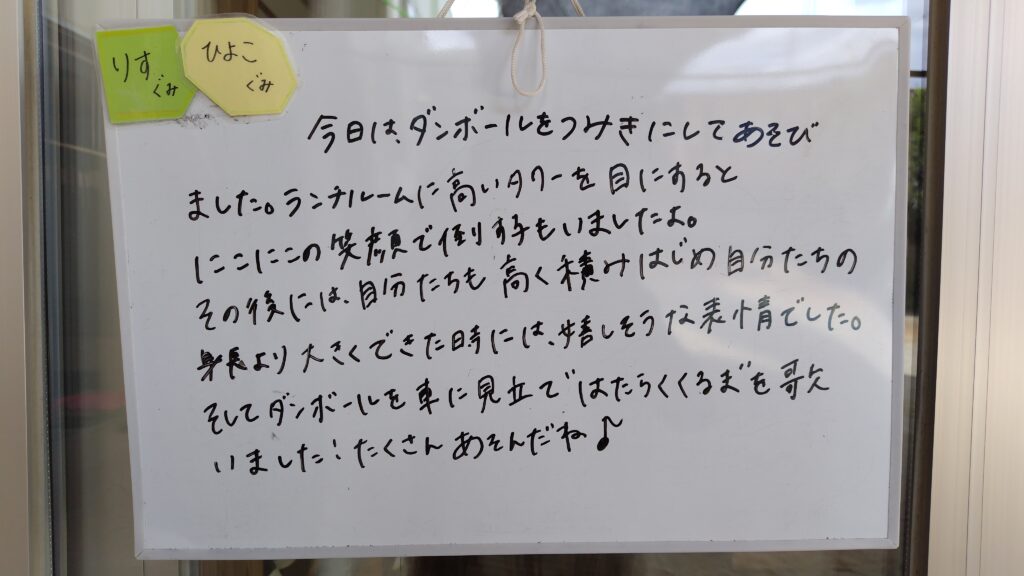 りすぐみ
ひよこぐみ
今日は、ダンボールをつみきにしてあそび
ました。ランチルームに高いタワーを目にすると
にこにこの笑顔で倒す子もいましたよ。
その後には、自分たちも高く積みはじめ自分たちの
身長より大きくできた時には、嬉しそうな表情でした。
そしてダンボールを車に見立て"はたらくくるま"を歌
いました!たくさんあそんだね♪